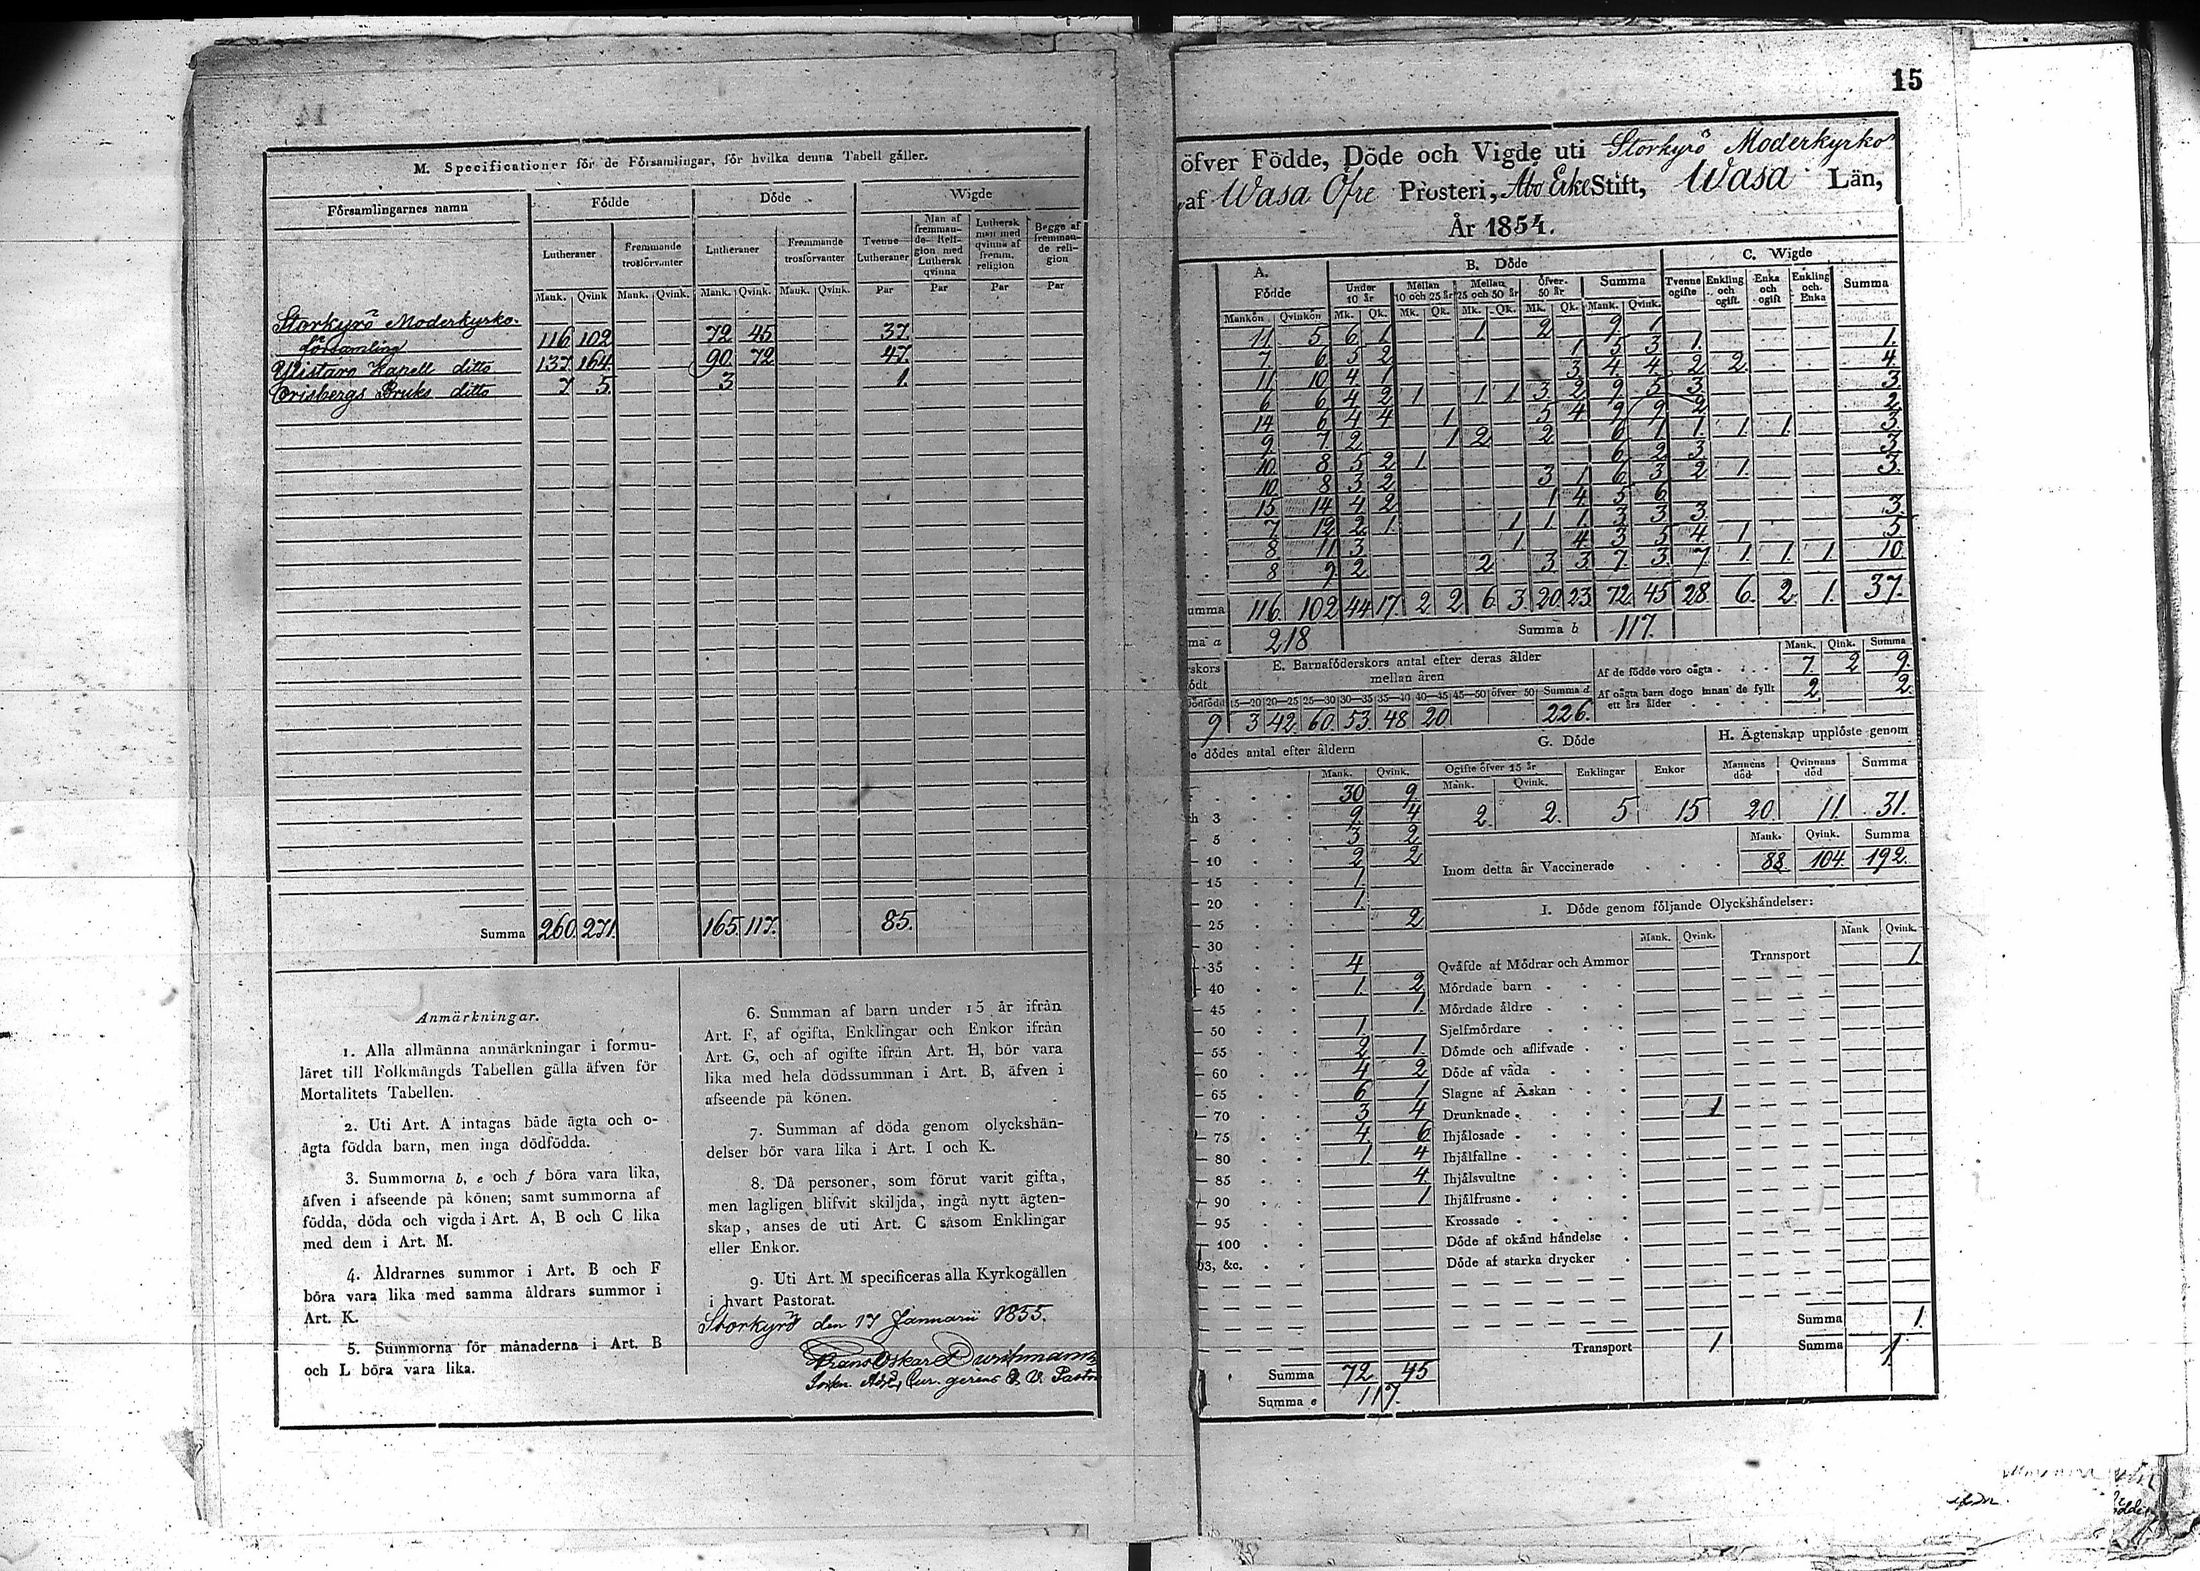 M. Specificationer för de Församlingar, för hvilka denna Tabell gäller.
Församlingarnes namn Födde Döde Wigde
Lutheraner Fremmande trosförvanter Lutheraner Fremmande trosförvanter Tvenne Lutheraner Man af fremmande Religion med Luthersk qvinna Luthersk man med qvinna af fremm. religion Begge af fremmande religion
Mank. Qvink Mank. Qvink. Mank. Qvink. Mank. Qvink. Par Par Par Par
Storkyrö Moderkyrko-
församling 116 102 72 45 37.
Ylistaro Kapell ditto 137 164 90 72 47.
Orisbergs Bruks ditto 7 5. 3 1.
Summa 260. 271. 165. 117. 85.
Anmärkningar.
1. Alla allmänna anmärkningar i formu-
läret till Folkmängds Tabellen gälla äfven för
Mortalitets Tabellen.
2. Uti Art. A intagas både ägta och o-
ägta födda barn, men inga dödfödda.
3. Summorna b, e och f böra vara lika,
äfven i afseende på könen; samt summorna af
födda, döda och vigda i Art. A, B och C lika
med dem i Art. M.
4. Åldrarnes summor i Art. B och F
böra vara lika med samma åldrars summor i
Art. K.
5. Summorna för månaderna i Art. B
och L böra vara lika.
6. Summan af barn under 15 år ifrån
Art. F, af ogifta, Enklingar och Enkor ifrån
Art. G, och af ogifte ifrån Art. H, bör vara
lika med hela dödssumman i Art. B, äfven i
afseende på könen.
7. Summan af döda genom olyckshän-
delser bör vara lika i Art. I och K.
8. Då personer, som förut varit gifta,
men lagligen blifvit skiljda, ingå nytt ägten-
skap, anses de uti Art. C såsom Enklingar
eller Enkor.
9. Uti Art. M specificeras alla Kyrkogällen
i hvart Pastorat.
Storkyrö den 17 Januarii 1855.
Frans Oskar Durchman
15
öfver Födde, Döde och Vigde uti Storkyrö Moderkyrko
af Wasa Öfre Prosteri, Åbo Erke Stift, Wasa Län,
År 1854.
A. Födde B. Döde C. Wigde
Under 10 år Mellan 10 och 25 år Mellan 25 och 50 år Öfver 50 år Summa Tvenne ogifte Enkling och ogift. Enka och ogift Enkling och Enka Summa
Mankön Qvinkön Mk. Qk. Mk. Qk. Mk. Qk. Mk. Qk. Mank. Qvink.
11 5 6 1 1 2 9 1
7 6 5 2 1 5 3 1. 1.
11 10 4 1 3 4 4 2 2 4.
6 6 4 2 1 1 1 3 2 9 5 3 3
14 6 4 4 1 5 4 9 9 2 2
9 7. 2 1 2 2 6 1 1 1 1. 3
10 8 5 2 1 6 2 3 3
10 8 3 2 3 1 6 3 2 1. 3.
15 14 4 2 1 4 5 6
7 12 2 1 1 1 1 3 3 3 3.
8 11 3 1 4 3 5 4 1 5
8 9 2 2 3 3 7. 3 7 1. 1. 1 10
umma 116. 102 44 17 2 2 6 3 20 23 72 45 28 6. 2 1. 37.
ma a 218 Summa b 117.
E. Barnaföderskors antal efter deras ålder
mellan åren
15—20 20—25 25—30 30—35 35—40 40—45 45—50 öfver 50 Summa d
9 3 42. 60. 53. 48 20 226.
Mank. Qink. Summa
Af de födde voro oägta . . . . 7. 2 9.
Af oägta barn dogo innan de fyllt
ett års ålder 2 2.
e dödes antal efter åldern
Mank. Qvink.
30 9.
h 3 9 4
5 3 2
10 2 2
15 1
20 1.
25 2
30
35 4
40 1. 2
45 1.
50 1.
55 2 1.
60 4 2
65 6 1
70 3 4
75 4 6
80 1. 4
85 4
90 1
95
100
03, &c.
Summa 72 45
Summa e 117.
G. Döde
Ogifte öfver 15 år Enklingar Enkor
Mank. Qvink.
2. 2. 5 15
H. Ägtenskap upplöste genom
Mannens död Qvinnans död Summa
20 11. 31.
Mank. Qvink. Summa
Inom detta år Vaccinerade 88 104 192.
I. Döde genom följande Olyckshändelser:
Mank. Qvink. Mank Qvink.
Qväfde af Mödrar och Ammor Transport 1.
Mördade barn
Mördade äldre
Sjelfmördare
Dömde och aflifvade
Döde af våda
Slagne af Åskan
Drunknade 1
Ihjälosade
Ihjälfallne
Ihjälsvultne
Ihjälfrusne
Krossade
Döde af okänd händelse
Döde af starka drycker
Summa 1.
Transport 1 Summa 1